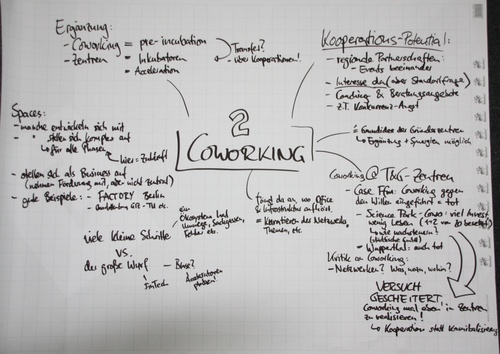 Ergänzung:
- Coworking = pre-incubation
- Zentren = Inkubatoren
= Acceleration
Transfer?
über Kooperationen!
Kooperations-Potential:
- regionale Partnerschaften:
Events
- Interesse da (aber Standortfrage)
- Coaching & Beratungsangebote
- z.T. Konkurrenz-Angst
2
COWORKING
Spaces:
- manche entwickeln sich mit
- stellen sich komplex auf
↳ für alle Phasen
hier = Zukunft
- stellen sich als Business auf
(nehmen Förderung mit, aber nicht zentral)
- gute Beispiele: - FACTORY Berlin
= Grundidee der Gründerzentren
↳ Ergänzung + Synergien möglich
Coworking @ T&G-Zentren
- Case Ffm: Coworking gegen
den Willen eingeführt = tot
- Science Park - Cowo: viel Invest
wenig Leben (1+2 von 20 besetzt)
↳ wie wachsen?
- Wuppertal: auch tot
Kritik an Coworking:
- Netzwerken? Was, wozu, wohin?
VERSUCH
GESCHEITERT,
Coworking mal eben in Zentren
zu realisieren!
↳ Kooperation statt Kannibalisierung
fängt da an, wo Office
& Infrastruktur aufhört.
= Kuratieren des Netzwerks,
Themen, etc.
viele kleine Schritte
vs.
der große Wurf
ein
Ökosystem
Umwege, Sackgassen,
Fehler etc.
- FinTech
- Börse?